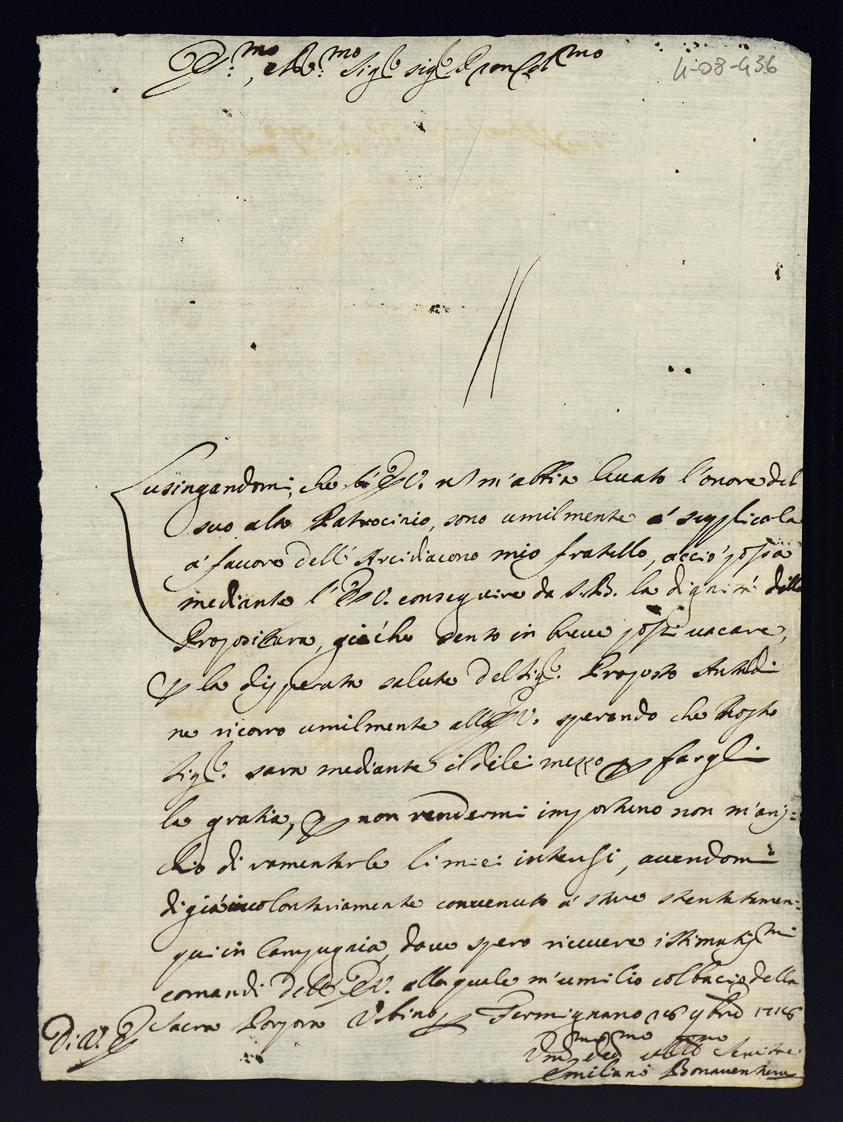 E.mo, e R.mo Sig.r sig.r P.ron Col.mo
4-08-436
Lusingandomi, che l'E.V. nõ m'abbia levato l'onore del
suo alto Patrocinio, sono umilmente á supplicarla
á favore dell'Arcidiacono mio fratello, acciò possa
mediante l'E.V. conseguire da S.B. la dignitá della
Propositura, giáche sento in breve possi vacare,
P la disperata salute del Sig.r Proposto Antaldi
ne ricorro umilmente all'E.V. sperando che Nostro
Sig.re sara mediante il di lei mezzo P fargli
la gratia, P non rendermi importuno non m'aris=
chio di ramentarle li miei interessi, avendomi
di giá involontariamente convenuto á stare stentatamen=
qui in Campagnia, dove spero ricevere i stimatiss.mi
comandi dell'E.V. alla quale m'umilio col bacio della
Di V. E. Sacra Porpora Urbino P Fermignano 16 9bre 1716
Um.mo ed obb.mo Servitore
Emiliano Bonaventura